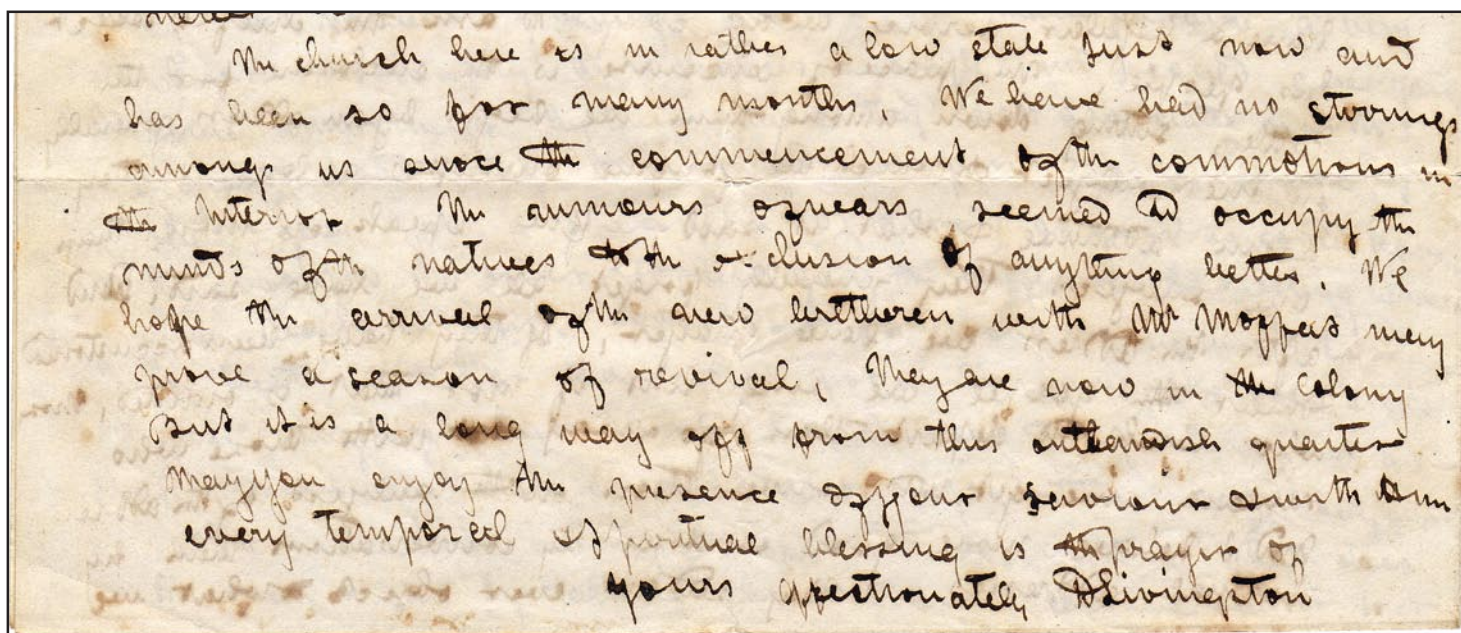 The church here is in rather a low state just now and
has been so for many months. We have had no stirrings
among us since the commencement of the commotions in
the Interior The rumours of wars seemed to occupy the
minds of the natives to the exclusion of anything better. We
hope the arrival of the new brethren with Mr Moffat may
prove a season of revival, They are now in the Colony
But it is a long way off from this outlandish quarter
May you enjoy the presence of your saviour & with Him
every temporal & spiritual blessing is the prayer of
yours affectionately D Livingston